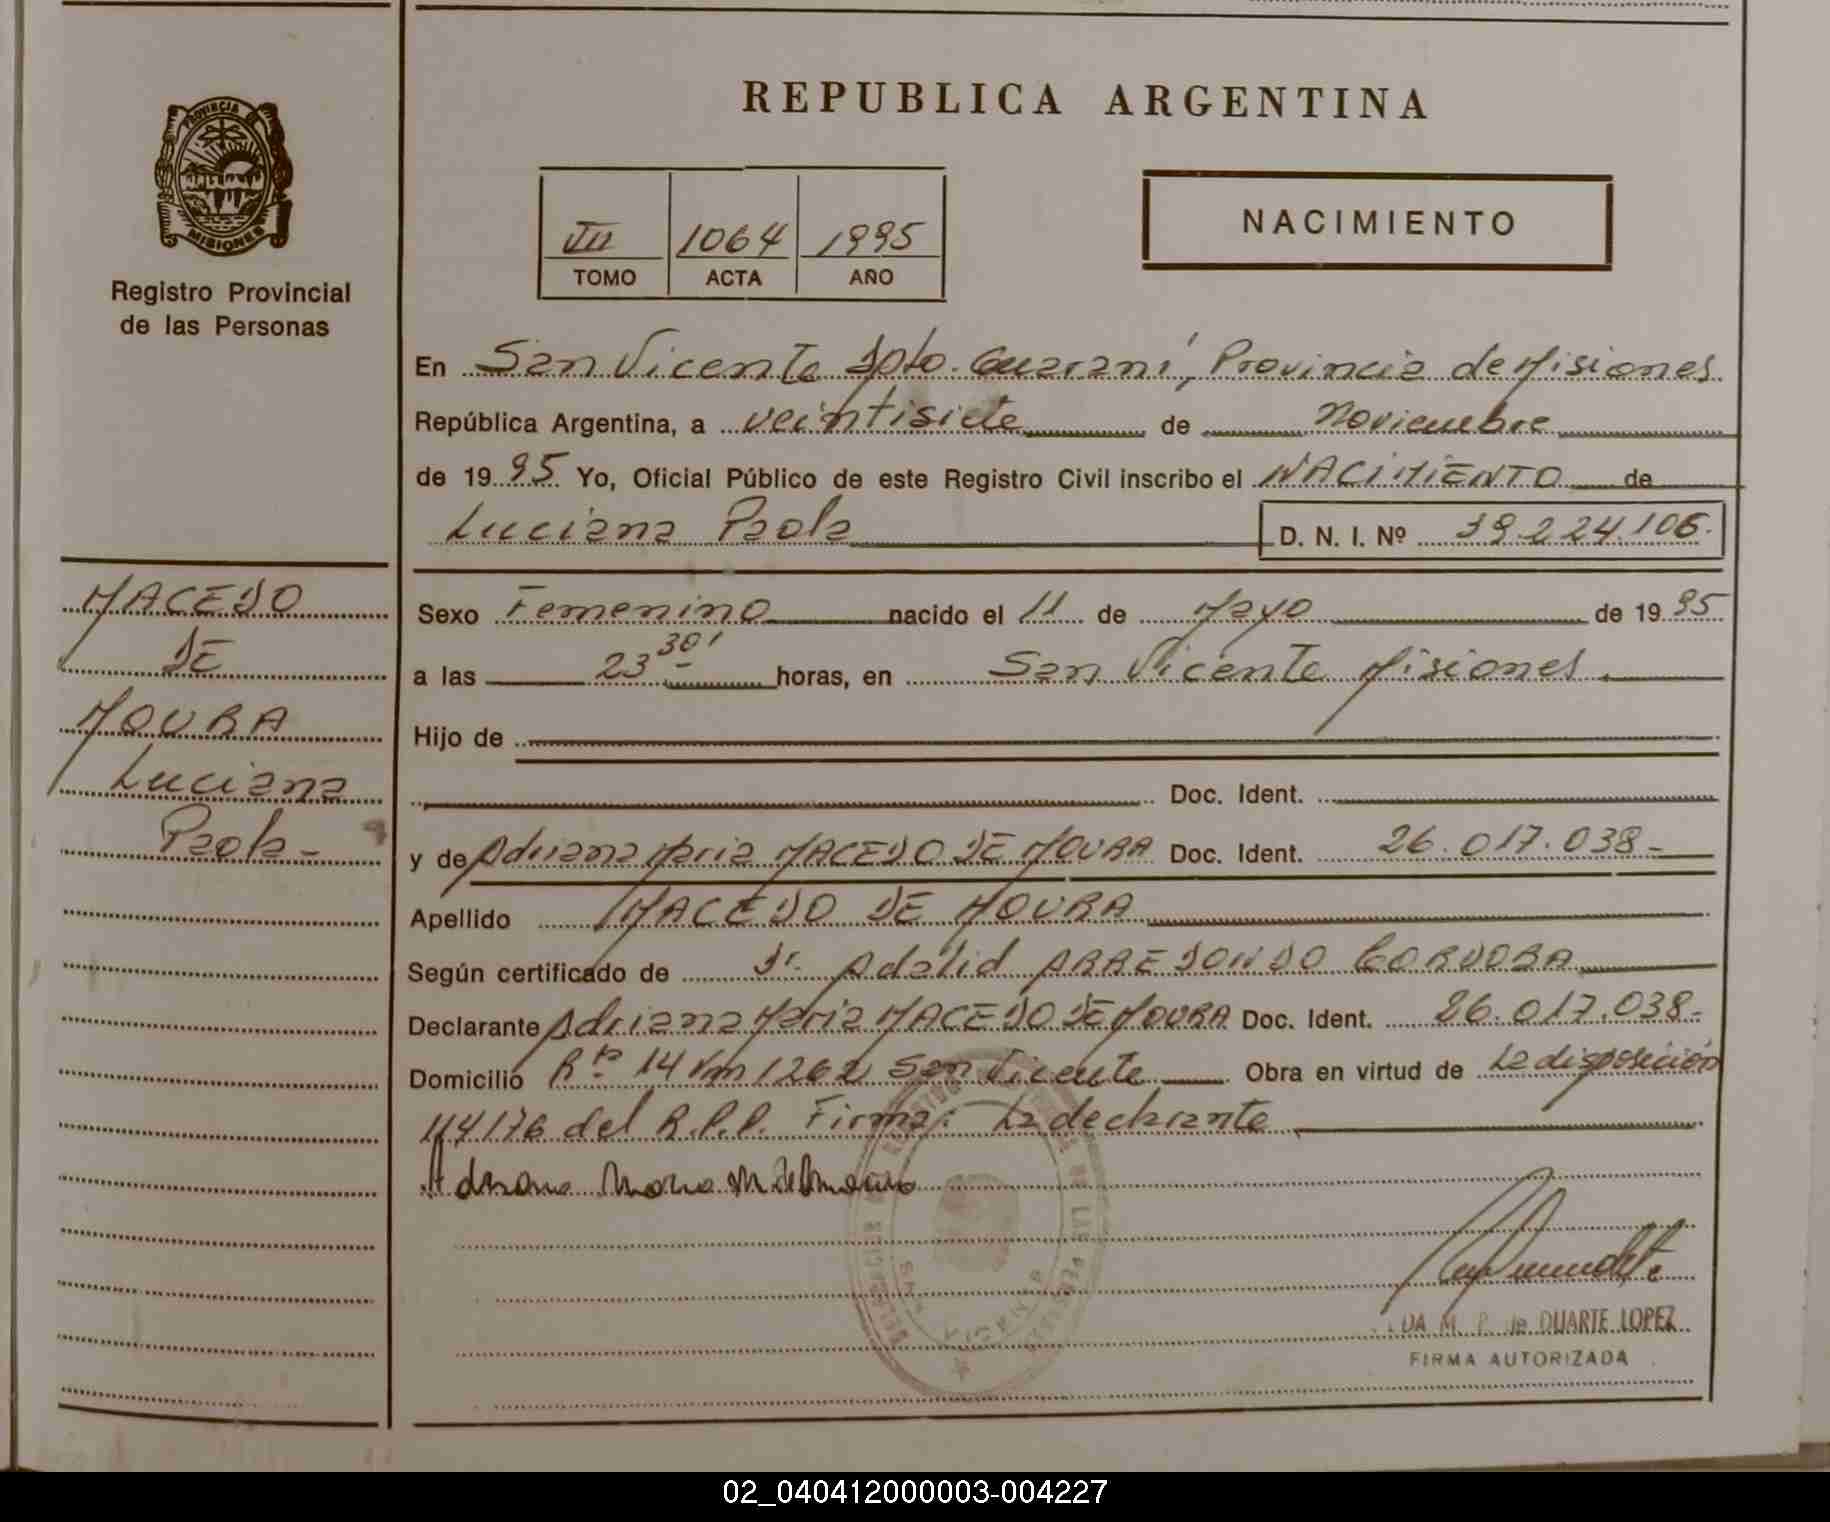 REPUBLICA ARGENTINA
PROVINCIA
MISIONES
Registro Provincial
de las Personas
VII 1064 1995
TOMO ACTA AÑO
NACIMIENTO
En San Vicente Dpto. Guaraní, Provincia de Misiones
República Argentina, a veintisiete de Noviembre
de 19 95 Yo, Oficial Público de este Registro Civil inscribo el NACIMIENTO de
Luciana Paola D. N. I. Nº 39.224.106.
MACEDO
DE
MOURA
Luciana
Paola-
Sexo Femenino nacido el 11 de Mayo de 19 95
a las 23 30' horas, en San Vicente Misiones
Hijo de
Doc. Ident.
y de Adriana Maria MACEDO DE MOURA Doc. Ident. 26.017.038-
Apellido MACEDO DE MOURA
Según certificado de Dr. Adalid ARREDONDO CORDOBA
Declarante Adriana Maria MACEDO DE MOURA Doc. Ident. 26.017.038-
Domicilio Rta 14 Km 1262 San Vicente Obra en virtud de La disposición
114176 del R.P.P. Firma: La declarante
Adriana Maria M. de Moura
SAN VICENTE
DE LAS PERSONAS
DA M. P. de DUARTE LOPEZ
FIRMA AUTORIZADA
02_040412000003-004227